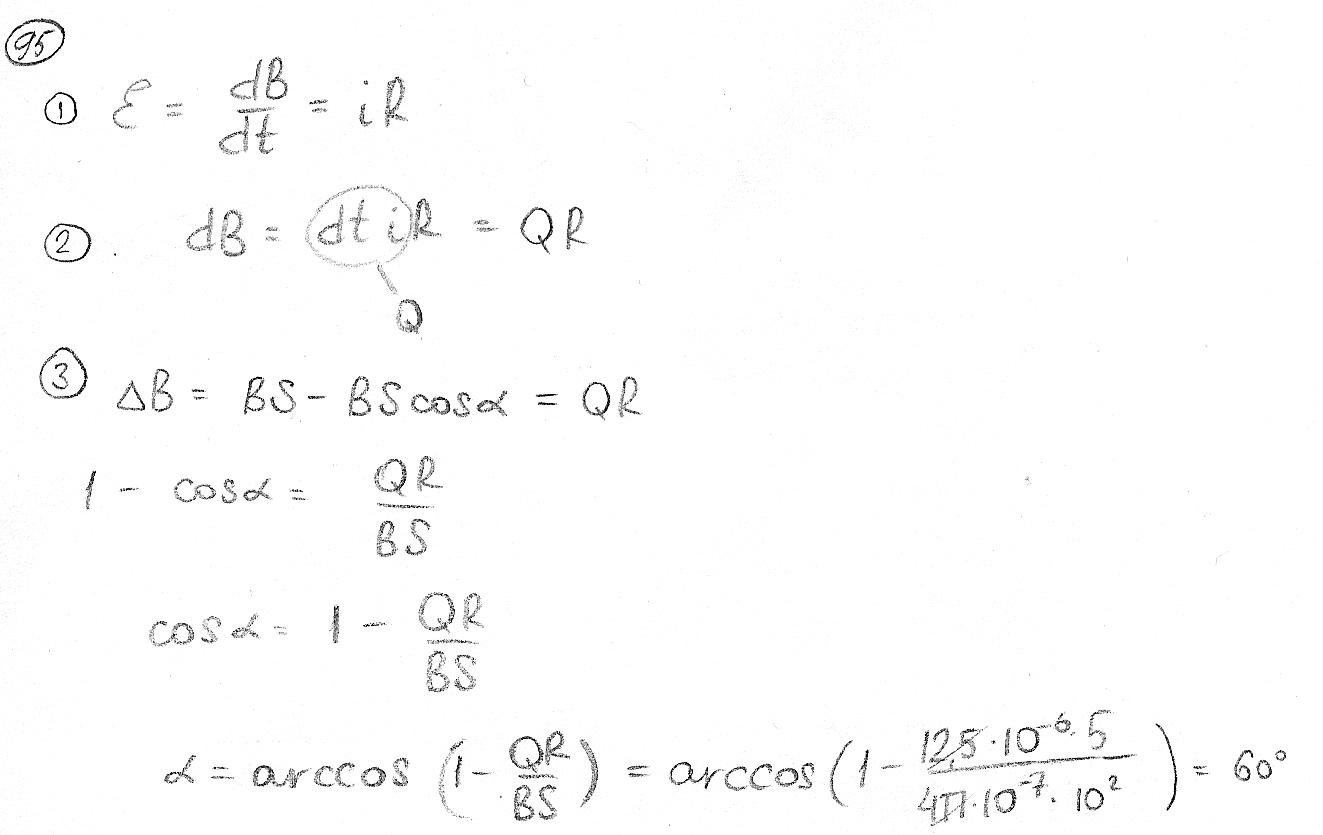 95
① ℰ = dB/dt = iR
② dB = dt iR = QR
Q
③ ΔB = BS - BS cosα = QR
1 - cosα = QR/BS
cosα = 1 - QR/BS
α = arccos (1 - QR/BS) = arccos (1 - 12,5·10⁻⁶·5/4π·10⁻⁷·10²) = 60°